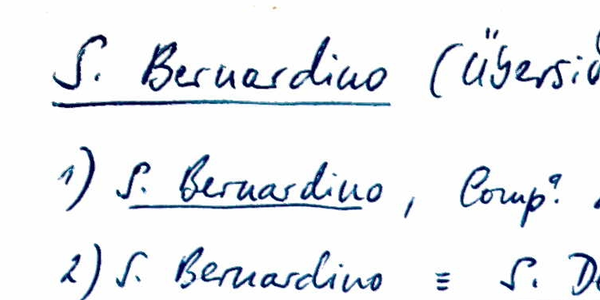 S. Bernardino
1) S. Bernardino, Comp.ª
2) S. Bernardino ≡ S.